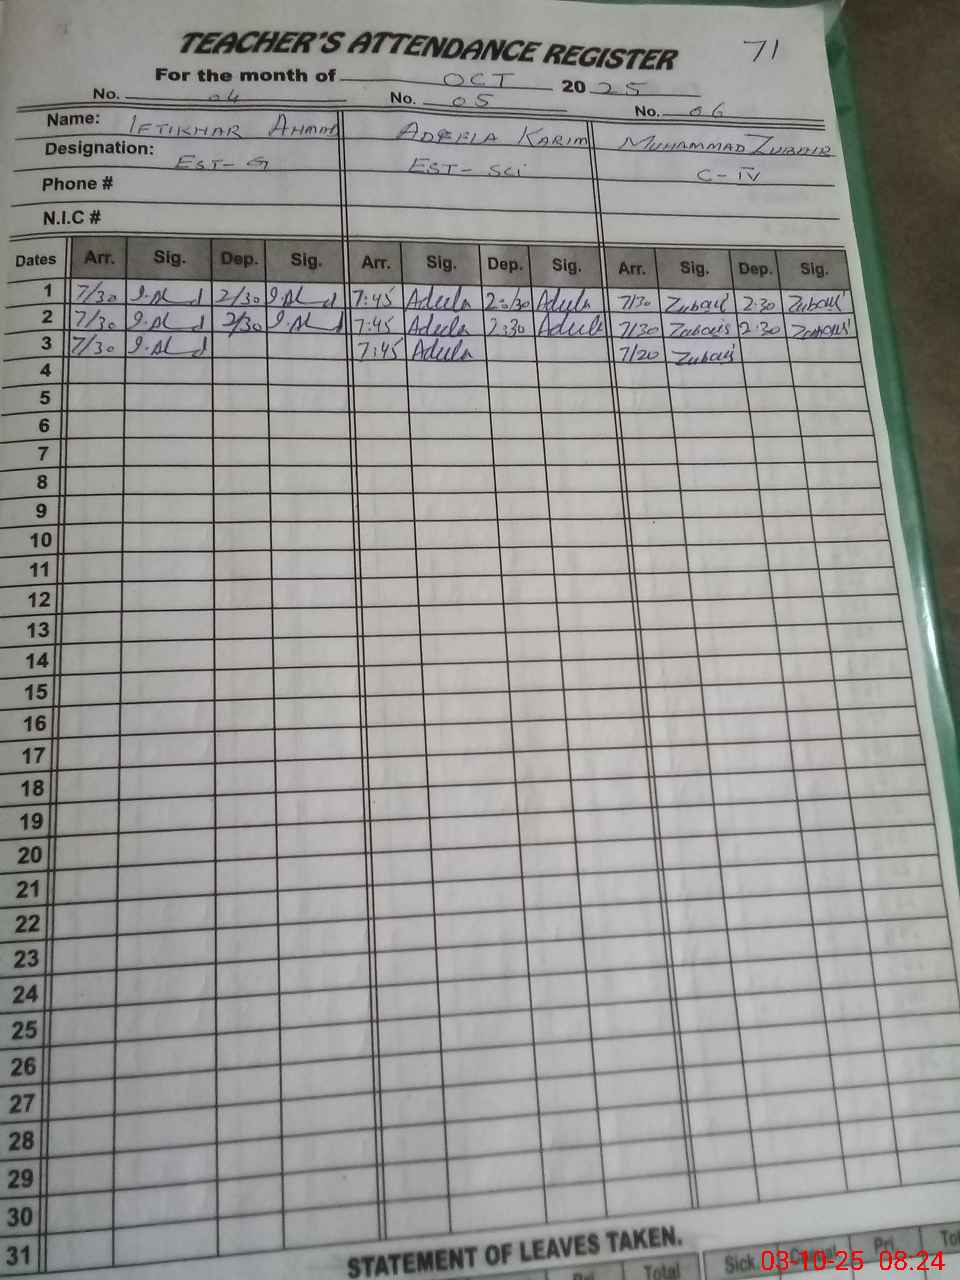 71
TEACHER'S ATTENDANCE REGISTER
For the month of OCT 2025
No. 04 No. 05 No. 06
Name: IFTIKHAR AHMAD ADEELA KARIM MUHAMMAD ZUBAIR
Designation: EST-G EST-SCi C-IV
Phone #
N.I.C #
Dates Arr. Sig. Dep. Sig. Arr. Sig. Dep. Sig. Arr. Sig. Dep. Sig.
1 7/30 2/30 7:45 Adeela 2:30 Adeela 7/30 Zubair 2:30 Zubair
2 7/30 2/30 7:45 Adeela 2:30 Adeela 7/30 Zubair 2:30 Zubair
3 7/30 7:45 Adeela 7/20 Zubair
4
5
6
7
8
9
10
11
12
13
14
15
16
17
18
19
20
21
22
23
24
25
26
27
28
29
30
31
STATEMENT OF LEAVES TAKEN.
Pri. Total Sick Pri.
03-10-25 08:24